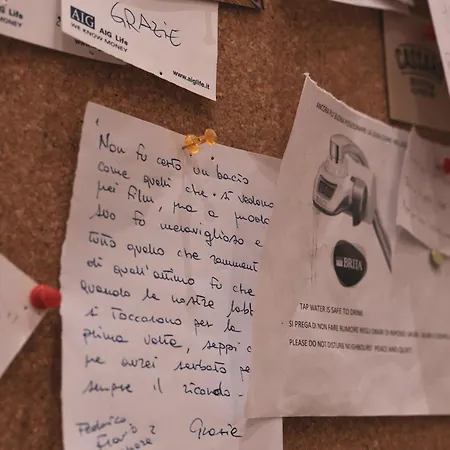 AIG AIG Life
WE KNOW MONEY
GRAZIE
www.aiglife.it
Non fu certo un bacio
come quelli che si vedono
nei film, ma a modo
suo fu meraviglioso e
tutto quello che ramment
di quell'attimo fu che
quando le nostre labb
si toccarono per la
prima volta, seppi c
ne avrei serbato pe
sempre il ricordo -
Federica
Grazie
BRITA
TAP WATER IS SAFE TO DRINK
SI PREGA DI NON FARE RUMORE NEGLI ORARI DI RIPOSO
PLEASE DO NOT DISTURB NEIGHBOURS' PEACE AND QUIET!